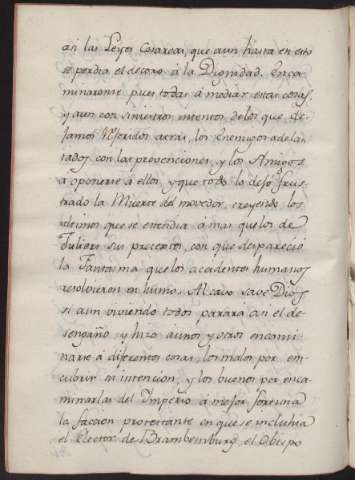 an las Leyes Cesareas, que aun hasta en esto
se perdia el decoro á la Dignidad. Enca-
minaronse pues todas á mediar estas cosas,
y aun con siniestros intentos de los que de-
jamos referidos atras, los enemigos adelan-
tados con las prevenciones, y los Amigos
a oponerse á ellos, y que todo lo dejó frus-
trado la Muerte del movedor, creyendo los
ultimos que se entendia á mas que los de
Juliers su pretexto, con que desapareció
la Fantasma que los accidentes humanos
resolvieron en humo. Al cavo save Dios
si aun viviendo todos parara en el de-
sengaño, y hizo á unos y otros encami-
narse á diferentes cosas, los malos por en-
cubrir su intencion, y los buenos por enca-
minarlas del Imperio á mejor fortuna
la facion protestante en que se incluhia
el Elector de Brambemburg, el Obispo